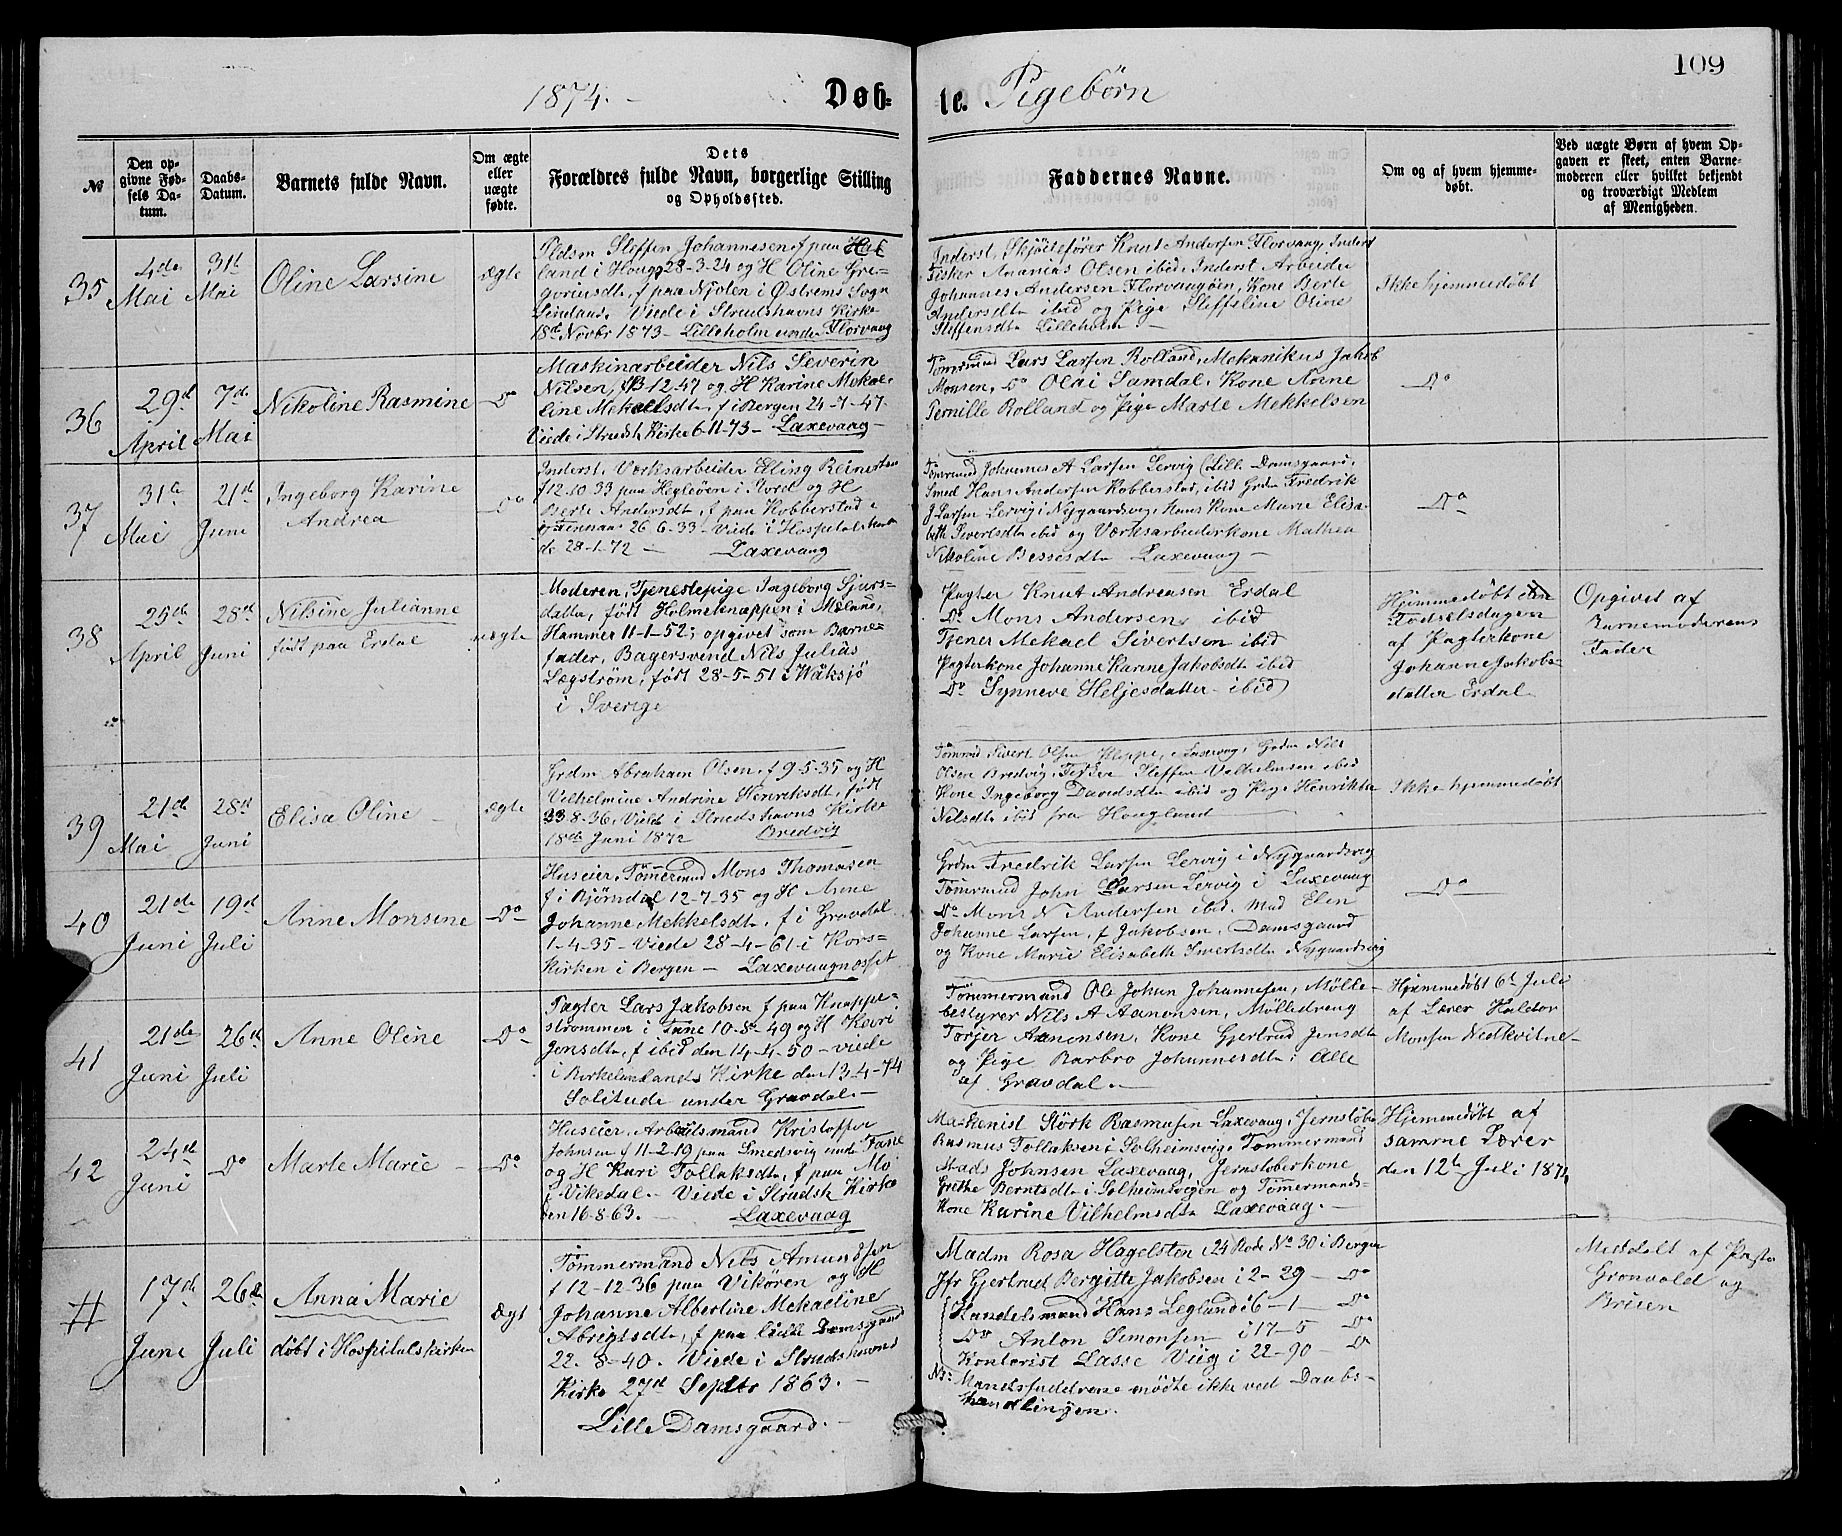 109
1874.- Døb-te. Pigebørn
№
Den op-
givne Fød-
sels Da-
tum.
Daabs-
Datum.
Barnets fulde Navn.
Om ægte
eller
uægte
fødte.
Dets
Forældres fulde Navn, borgerlige Stilling
og Opholdssted.
Faddernes Navne.
Om og af hvem hjemme-
døbt.
Ved uægte Børn af hvem Op-
gaven er skeet, enten Barne-
moderen eller hvilket bekjendt
og troværdigt Medlem
af Menigheden.
35
4de
Mai
31t
Mai
Oline Larsine
ægte
Oldsm Steffen Johannesen, f paa
land i Haugs 28-3-24 og H Oline Gre-
goriusdt, f paa Njølen i Østrems Sogn
Viede i Strudshavns Kirke
18de Novbr 1873 - Lilleholm under Florvaag
Inderst, Skjøtsfører Knut Andersen Florvaag, Inderst
Fisker Ananias Olsen ibid, Inderst Arbeider
Johannes Andersen Florvaagøen, Kone Berte
Andersdt ibid og Pige Steffeline Oline
Steffensdt Lilleholm -
Ikke hjemmedøbt
36
29d
April
7de
Mai
Nikoline Rasmine
Do
Maskinarbeider Nils Severin
Nilsen, f 3-12-47 og H Karine Mekae-
line Mekelsdt, f i Bergen 24-7-47-
Viede i Strudsh Kirke 6-11-73 - Laxevaag -
Tømrmnd Lars Larsen Rolland, Mekanikus Jakob
Monsen, Do Olai Samdal, Kone Anne
Pernille Rolland og Pige Marte Mekkelsen
Do
37
31te
Mai
21d
Juni
Ingeborg Karine
Andrea
Do
Inderst, Værksarbeider Elling Reinertsen
f 12-10-33 paa Hegleøen i Stord og H
Berte Andersdt, f paa Kobberstad i
26-6-33 - Viede i Hospitalskirken
de 28-1-72 - Laxevaag
Tømrmnd Johannes A Larsen Lervig (Lille Damsgaard,
Smed Hans Andersen Kobberstad, ibid Grdm Fredrik
J Larsen Lervig i Nygaardsvig, Hans Kone Marie Elisa-
beth Sivertsdt ibid og Værksarbeiderkone Mathea
Nikoline Bessesdt Laxevaag -
Do
38
25de
April
28de
Juni
Nilsine Julianne
født paa Erdal
uægte
Moderen, Tjenestepige Ingeborg Sjurs-
datter, født Holmeknappen i Mælane,
Hammer 11-1-52; opgivet som Barne-
fader, Bagersvend Nils Julius
Lægstrøm, født 28-5-51 i Wäksjö
i Sverige
Pagter Knut Andreasen Erdal
Do Mons Andersen ibid
Tjener Mekael Sivertsen ibid
Pagterkone Johanne Karine Jakobsdt ibid
Do Synneve Heljesdatter ibid
Hjemmedøbt
Fødselsdagen
af Pagterkone
Johanne Jakobs-
datter Erdal
Opgivet af
Barnemoderens
Fader
39
21de
Mai
28de
Juni
Elisa Oline -
ægte
Grdm Abraham Olsen, f 9-5-35 og H
Vilhelmine Andrine Henriksdt, født
23-8-36, Viede i Strudshavns Kirke
18de Juni 1872 Bredvig
Tømrmd Sivert Olsen i Laxevaag, Grdm Nils
Olsen Bredvig, Fisker Steffen Velhelmsen ibid
Kone Ingeborg Davidsdt ibid og Pige Henrikke
Nilsdt ibid fra Hougland
Ikke hjemmedøbt
40
21de
Juni
19d
Juli
Anne Monsine
Do
Huseier, Tømermnd Mons Thomasen
f i Bjørndal 12-7-35 og H Anne
Johanne Mekkelsdt, f i Gravdal
1-4-35 - Viede 28-4-61 i Kors-
kirken i Bergen - Laxevaagnesset
Grdm Fredrik Larsen Lervig i Nygaardsvig
Tømrmnd John Larsen Lervig i Laxevaag
Do Mons N Andersen ibid, Mad Elen
Johanne Larsen, f Jakobsen, Damsgaard
og Kone Marie Elisabeth Sivertsdt Nygaardsvig
Do
41
21de
Juni
26de
Juli
Anne Oline
Do
Pagter Lars Jakobsen f paa Knappe-
strømmen i Fane 10-8-49 og H Kari
Jensdt, f ibid den 14-4-50 - viede
i Birkelunlands Kirke den 13-4-74
Solitude under Gravdal. -
Tømmermand Ole Johan Johannesen, Mølle-
bestyrer Nils A Aanonsen, Mølledreng
Torjer Aanonsen, Kone Gjertrud Jensdt
og Pige Barbro Johannesdt: Alle
af Gravdal. -
Hjemmedøbt 6t Juli
af Lærer Haldor
Monsen Nedkvitne -
42
24de
Juni
Do
Marte Marie -
Do
Huseier, Arbeidsmand Kristoffer
Johnsen f 11-2-19 paa Smedsvig under Fane
og H Kari Tollaksdt, f paa Mo
i Vikedal - Viede i Strudsh Kirke
den 16-8-63. - Laxevaag
Maskinist Størk Rasmusen Laxevaag, Jernstøber
Rasmus Tollaksen i Solheimsvig, Tømmermand
Mads Johnsen Laxevaag, Jernstøberkone
Grethe Berntsdt i Solheimsvigen og Tømmermands-
kone Karine Vilhelmsdt Laxevaag. -
Hjemmedøbt af
samme Lærer
den 12te Juli 1874
#
17de
Juni
26de
Juli
Anna Marie
døbt i Hospitalskirken
ægt
Tømmermand Nils Amundsen
f 12-12-36 paa Vikøren og H
Johanne Albertine Mekaeline
Abrigtsdt, f paa Lille Damsgaard
22-8-40. Viede i Strudshavns
Kirke 27de Septbr 1863. -
Lille Damsgaard. -
Madm Rosa Hagelsten i 24 Rode No 30 i Bergen
Jfr Gjertrud Bergitte Jakobsen i 2-29 - Do
Handelsmand Hans Legland i 6-1 - Do
Do Anton Simonsen i 17-5 Do
Kontorist Lasse Viig i 22-90 - Do
NB: Mandsfadderene mødte ikke ved Daabs-
handlingen.
Meddelt af Pastor
Grønvold og
Brisen